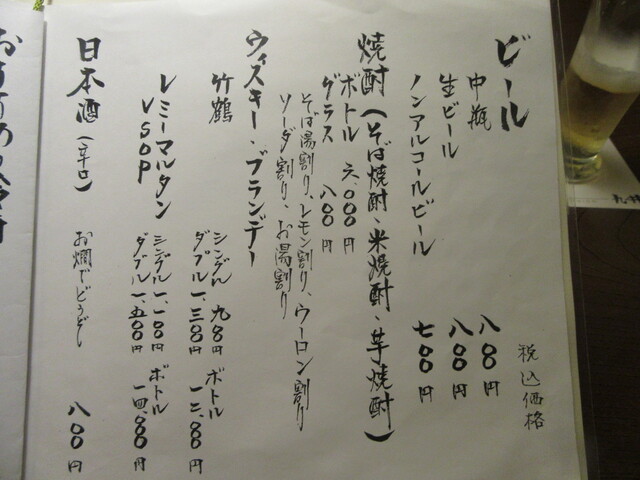 税込価格
ビール
中瓶 八〇〇円
生ビール 八〇〇円
ノンアルコールビール 七〇〇円
焼酎(そば焼酎、米焼酎、芋焼酎)
ボトル 六、〇〇〇円
グラス 八〇〇円
そば湯割り、レモン割り、ウーロン割り
ソーダ割り、お湯割り
ウィスキー、ブランデー
竹鶴 シングル 九〇〇円 ボトル 一二、〇〇〇円
ダブル 一、三〇〇円
レミーマルタン VSOP シングル 一、一〇〇円 ボトル 一四、〇〇〇円
ダブル 一、五〇〇円
日本酒(辛口) お燗でどうぞ 八〇〇円